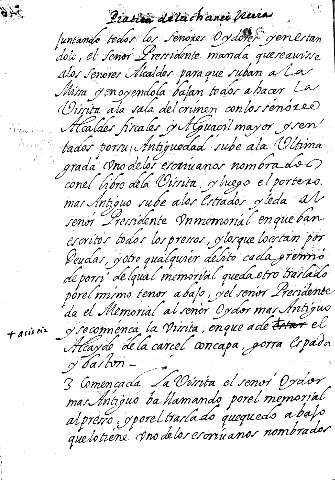 Pratica de la chancilleria
Juntando todos los señores Oydores, y en estan
dolo, el señor Pressidente manda que se auisse
a los señores Alcaldes para que suban a la
Missa y en oyendola bajan todos a hacer la
Vissita a la sala del crimen con los señores
Alcaldes fiscales y Alguacil mayor, y sen
tados por su Antiguedad sube a la Ultima
grada Uno de los escriuanos nombrado
con el libro de la Vissita, y luego el portero
mas Antiguo sube a los Estrados y le da al
señor Pressidente Un memorial en que ban
escritos todos los pressos, y los que lo estan por
Deudas, y otro qualquier delito cada gremio
de por si del qual memorial queda otro traslado
por el mismo tenor abajo, y el señor Presidente
da el Memorial al señor Oydor mas Antiguo
+ asistir
y se comienca la Vissita, en que a de Estar el
Alcayde de la carcel con capa, gorra Espada
y baston
3 Començada la Vissita el señor Oydor
mas Antiguo ba llamando por el memorial
al presso, y por el traslado que quedo abajo
que lo tiene Uno de los escriuanos nombrados